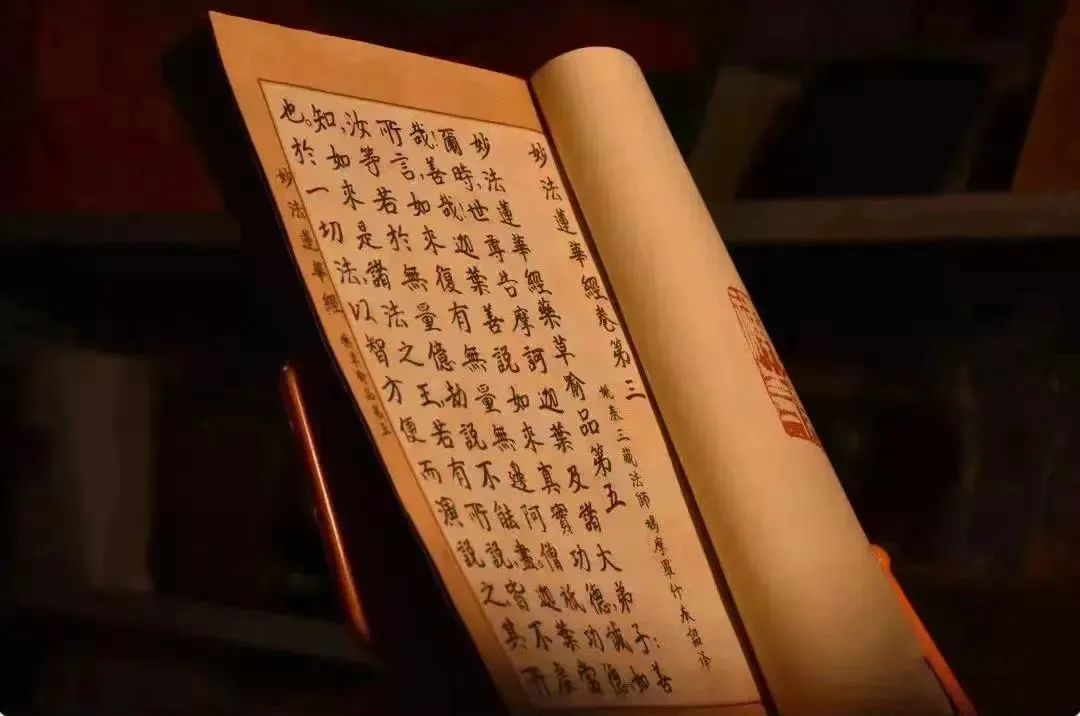 妙法蓮華經卷第三
姚秦三藏法師鳩摩羅什奉詔译
妙法蓮華經藥草喻品第五
爾時,世尊告摩訶迦葉及諸大弟子:善
哉!善哉!迦葉善說如來真實功德,誠如
所言,如來復有無量無邊阿僧祇功德,
汝等若於無量億劫說不能盡。迦葉當
知,如來是諸法之王,若有所說,皆不虛
也。於一切法,以智方便而演說之,其所
妙法蓮華經 藥草喻品第五